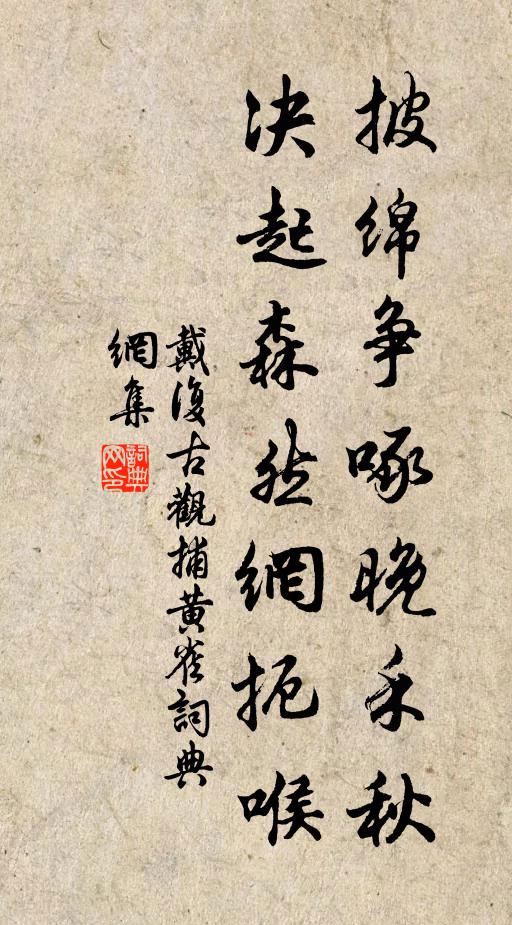 披绵争啄晚禾秋
决起森然網扼喉
戴復古觀捕黄雀詞典
網集
詞典
网印